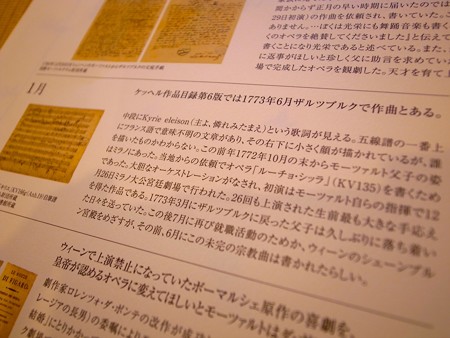 間かからず正月の早い時期に届いたのでは
29日初演)の作曲を依頼され、書いていた。こ
ありません。…ばくは光栄にも舞踊音楽も書く
くのオペラを絶賛してくださいました」と伝えて
書くことになり光栄であると述べている。また、
に返事がほしいと珍しく父に助言を求めてい
場で完成したオペラを観劇した。天才を育て上
1月
ケッヘル作品目録第6版では1773年6月ザルツブルクで作曲とある。
中段にKyrie eleison(主よ、憐れみたまえ)という歌詞が見える。五線譜の一番上
にフランス語で意味不明の文章があり、その右下に小さく顔が描かれているが、誰
を描いたものかわからない。この前年1772年10月の末からモーツァルト父子の姿
はミラノにあった。当地からの依頼でオペラ「ルーチョ・シッラ」(KV135)を書くため
であった。大胆なオーケストレーションがなされ、初演はモーツァルト自らの指揮で12
月26日ミラノ大公宮廷劇場で行われた。26回も上演された生前最も大きな手応え
を得た作品である。1773年3月にザルツブルクに戻った父子は久しぶりに落ち着い
た日々を送っていた。この後7月に再び就職活動のためか、ウィーンのシェーンブル
ン宮殿をめざすが、その前、6月にこの未完の宗教曲は書かれたらしい。
ウィーンで上演禁止になっていたボーマルシェ原作の喜劇を、
皇帝が認めるオペラに変えてほしいとモーツァルトは
劇作家ロレンツォ・ダ・ポンテの改作が成功
レージアの長男)の委嘱により
結婚」にとりかかっ